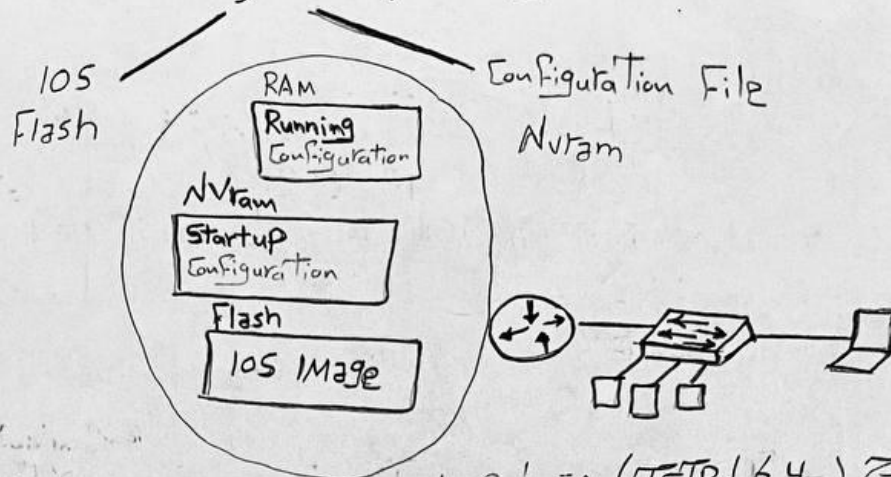 IOS
Flash
Configuration File
Nvram
RAM
Running
Configuration
NVram
Startup
Configuration
Flash
IOS IMage